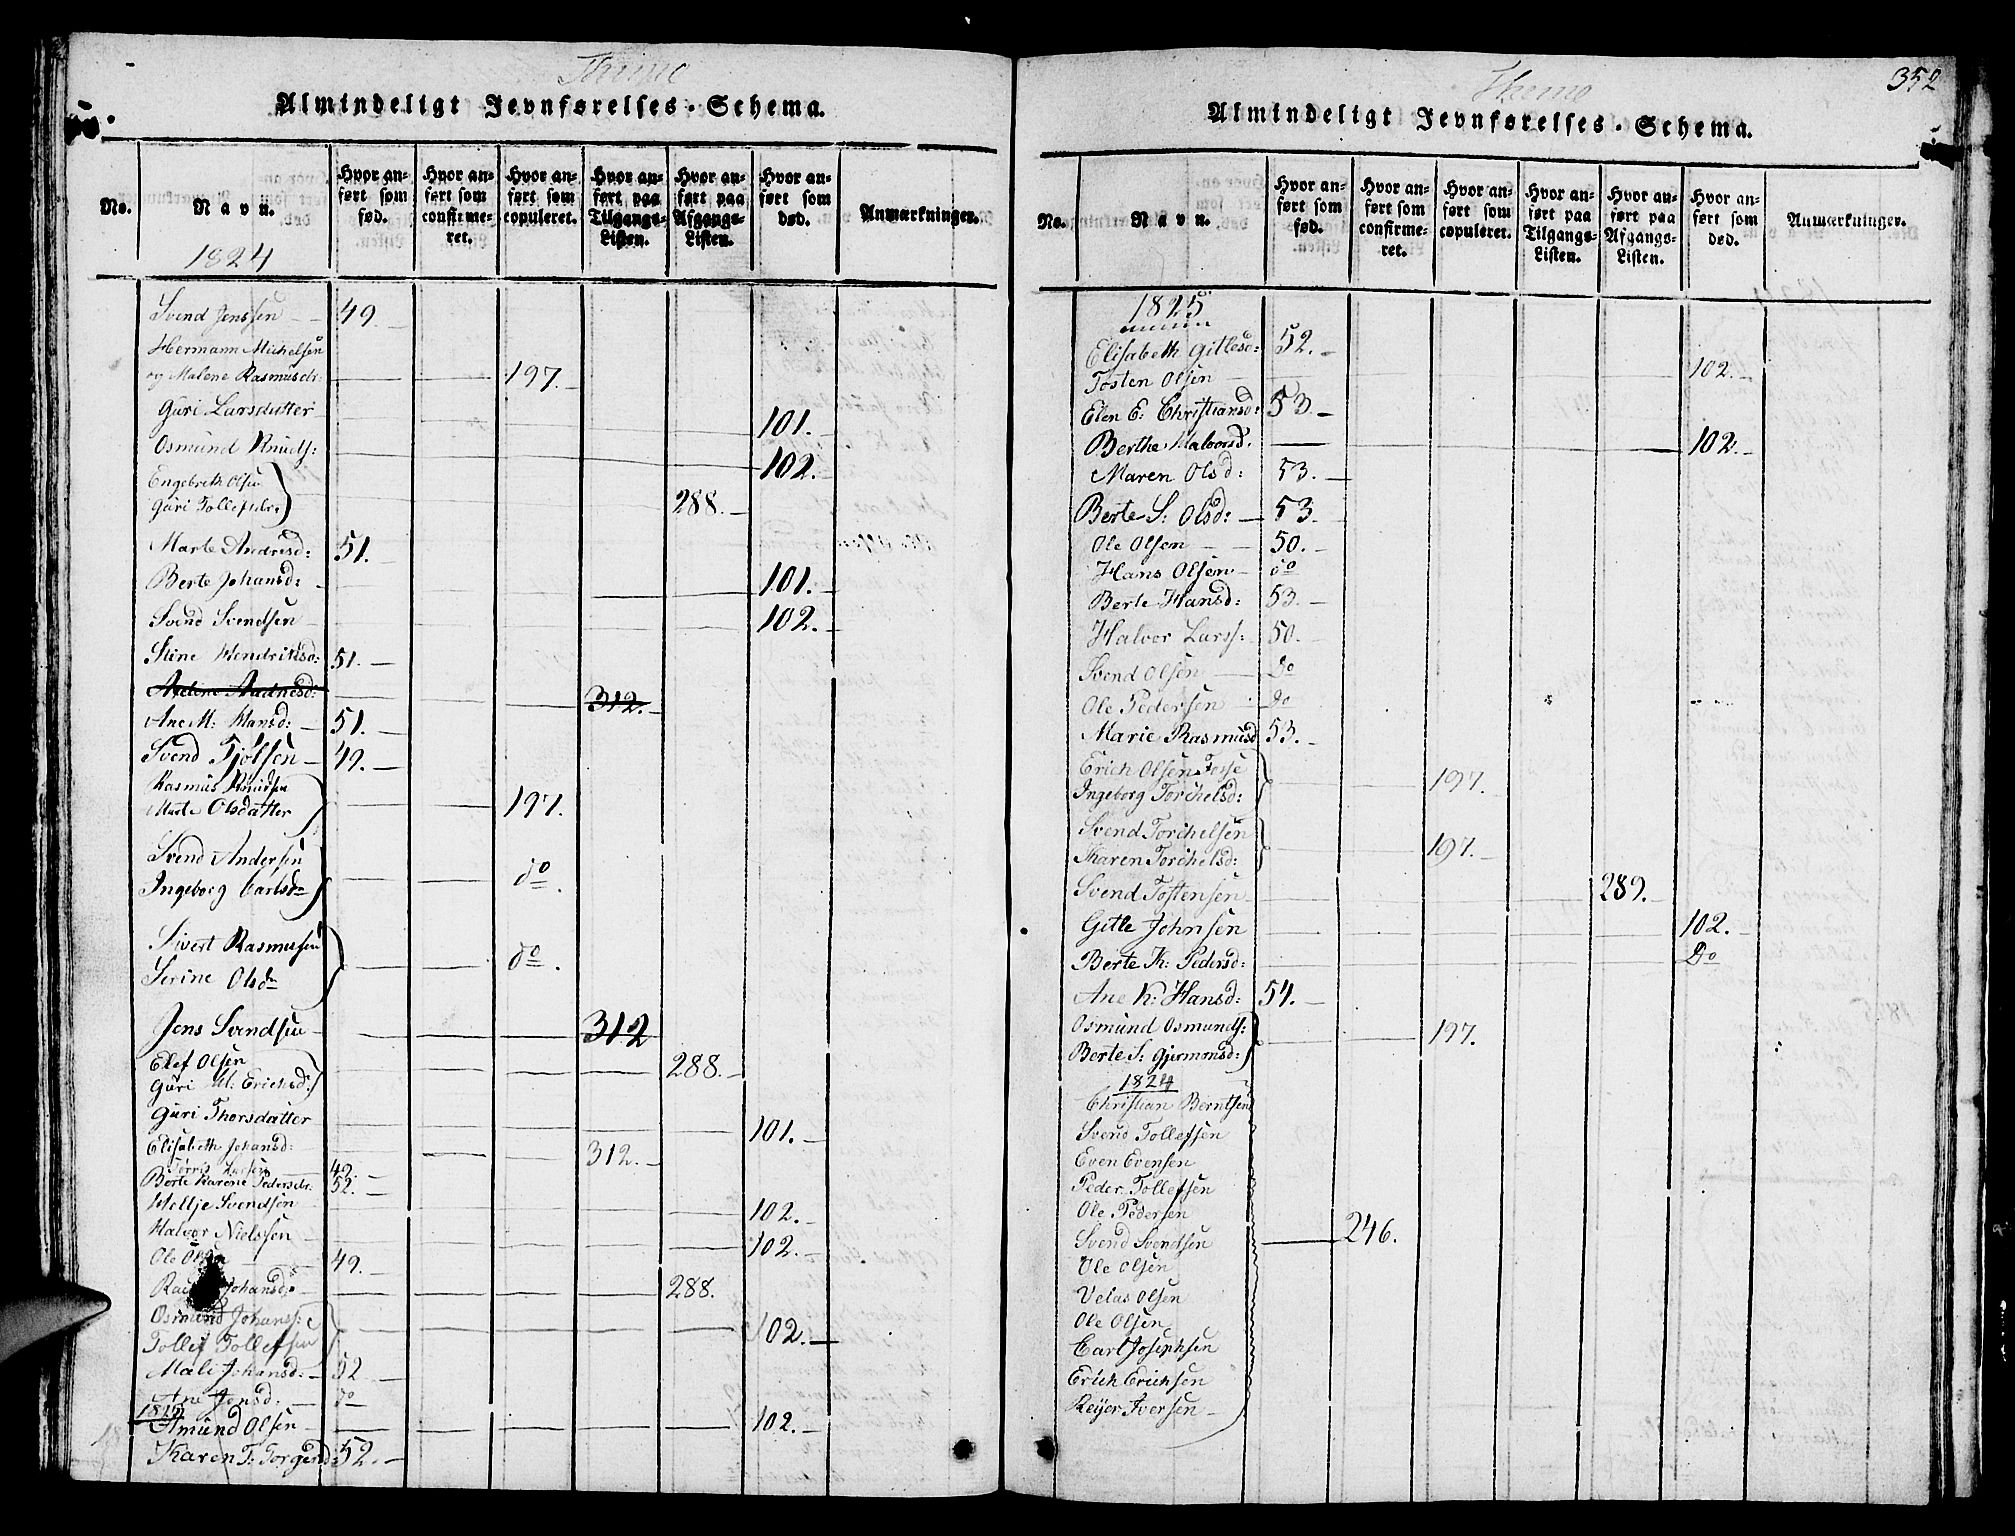 Thime
Almindeligt Jevnførelses-Schema.
No.
Navn.
Hvor anført som fød.
Hvor anført som confirmeret.
Hvor anført som copuleret.
Hvor anført paa Tilgangs-Listen.
Hvor anført paa Afgangs-Listen.
Hvor anført som død.
Anmærkninger.
1824
Svend Jenssen 49.
Hermann Michelsen
og Malene Rasmusdr. 197.
Guri Larsdatter 101.
Osmund Knuds: 102.
Engebreth Olsen
Guri Tollefsdr. 288.
Marte Andersd: 51.
Berte Johansd: 101.
Svend Svendsen 102.
Stine Hendriksd: 51.
Axeline Aadnesd: 312.
Ane M: Hansd: 51.
Svend Tjølsen 49.
Rasmus Knudsen
Marte Olsdatter 197.
Svend Andersen
Ingeborg Carlsdr do.
Sivert Rasmussen
Serine Olsdr do.
Jens Svendsen 312
Elef Olsen
Guri M: Erichsd: 288.
Guri Thorsdatter 101.
Elisabeth Johansd: 312.
Tørris Larsen 49.
Berte Karene Pedersdr. 52.
Heltje Svendsen 102.
Halvor Nielssen 102.
Ole Olsen 49.
Johansd: 288.
Osmund Johanss:
Tollef Tollefsen 102.
Mali Johansd: 52
Ane Jonsd. do
1825
Amund Olsen 102.
Karen T: Torgersd: 52.
352
Thime
Almindeligt Jevnførelses-Schema.
No.
Navn.
Hvor anført som fød.
Hvor anført som confirmeret.
Hvor anført som copuleret.
Hvor anført paa Tilgangs-Listen.
Hvor anført paa Afgangs-Listen.
Hvor anført som død.
Anmærkninger.
1825
Elisabeth Gitlesd: 52.
Tosten Olsen 102.
Elen E: Christiansd: 53.
Berthe Halvorsd. 102.
Maren Olsd: 53.
Berte S: Olsd: 53.
Ole Olsen 50.
Hans Olsen do
Berte Hansd: 53.
Halvor Larss: 50.
Svend Olsen Do
Ole Pedersen Do
Marie Rasmusd 53.
Erich Olsen Fosse
Ingeborg Torchelsd: 197.
Svend Torchelsen
Karen Torchelsd: 197.
Svend Tostensen 289.
Gitle Johnsen 102.
Berte K: Pedersd: Do
Ane K: Hansd: 54.
Osmund Osmunds:
Berte S: Gjermonsd: 197.
1824
Christian Berntsen
Svend Tollefsen
Even Evensen
Peder Tollefsen
Ole Pedersen
Svend Svendsen 246.
Ole Olsen
Velas Olsen
Ole Olsen
Carl Josephsen
Erich Erichsen
Reijer Iversen